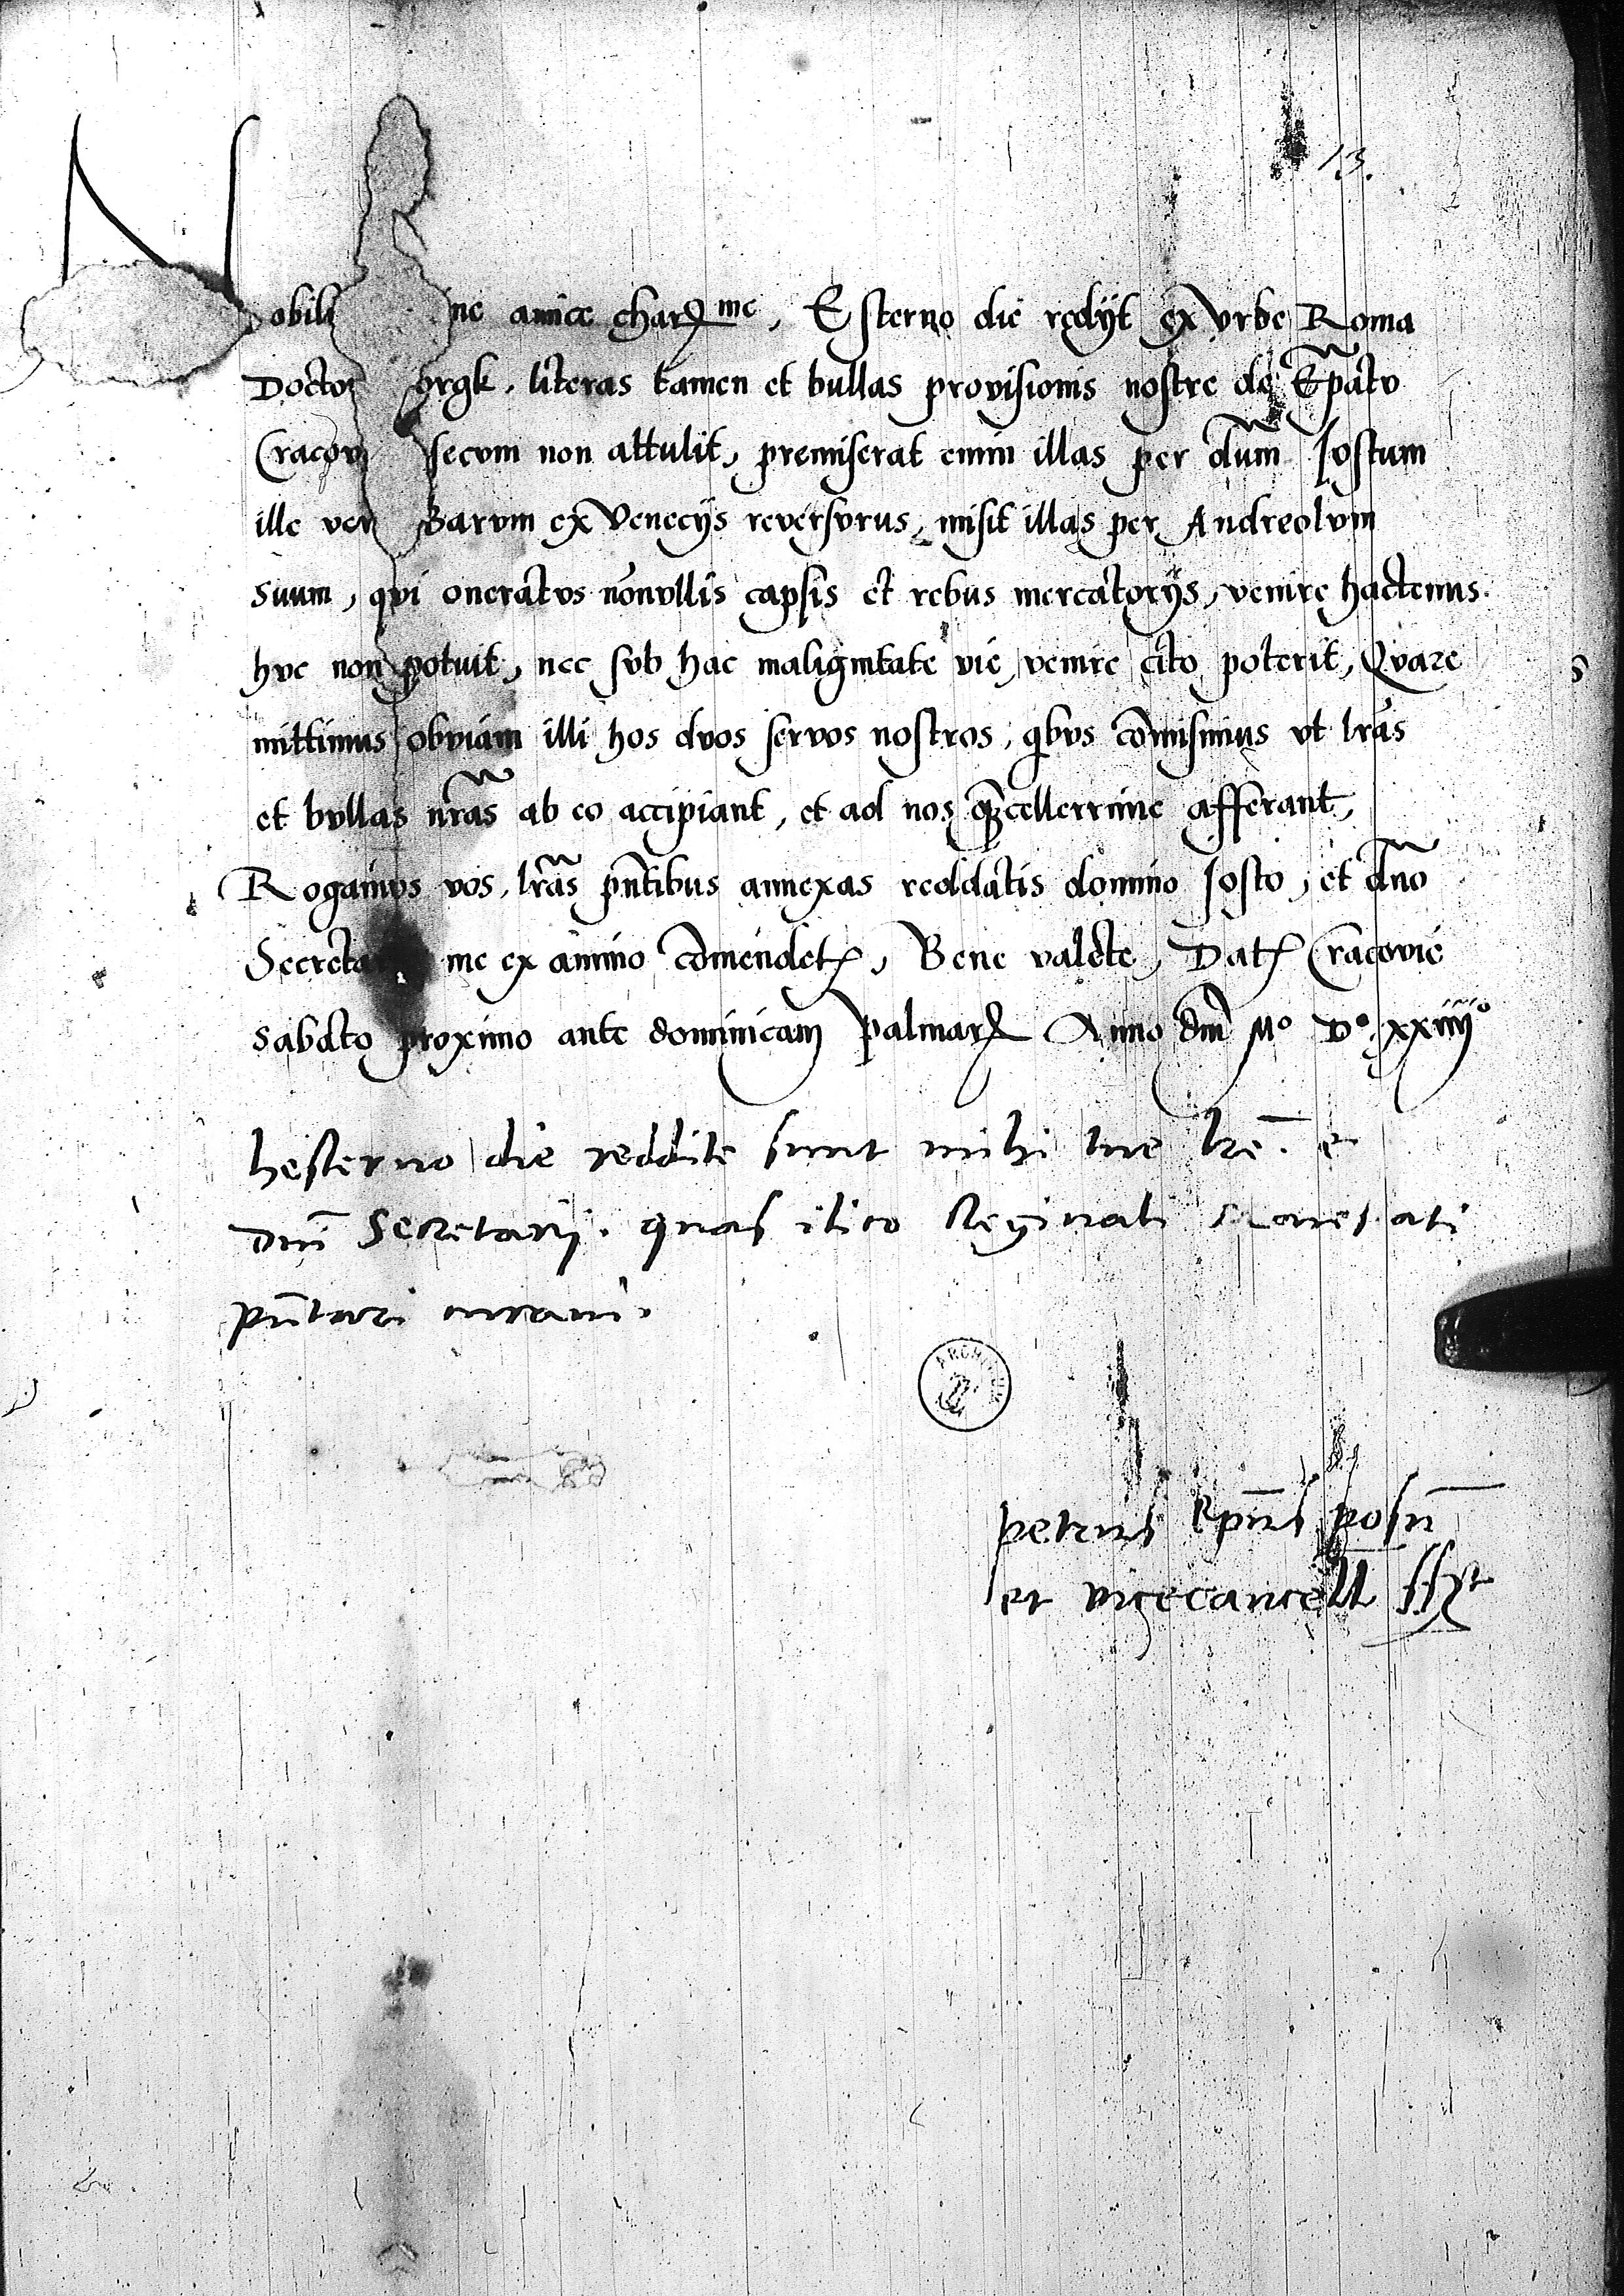 13.
Nobili ne amice char. me, Esterno die redijt ex vrbe Roma
Docto orgk, literas tamen et bullas provisionis nostre de Ep̄atv
Cracov secvm non attulit, premiserat enim illas per dūm Jostum
ille ver Barvm ex Venecijs reversvrus, misit illas per Andreolvm
suum, qvi oneratvs nōnvllis capsis et rebus mercatorijs, venire hactenus
hvc non potuit, nec svb hac malignitate vie, venire cito poterit, Qvare
mittimus obviam illi hos dvos servos nostros, qbvs cōmisimus vt lrās
et bvllas nrās ab eo accipiant, et ad nos qp̄celerrime afferant,
Rogamvs vos, lrās pn̄tibus annexas reddatis domino Josto, et dn̄o
Secreta me ex animo cōmendet, Bene valete, Dat Cracovie
sabato proximo ante dominicam palmar Anno dn̄i Mº Dº xxiiijº
hesterno die reddite sunt mihi tue lrē. et
dn̄i Secretarij. quas ilico Reginali Maiestati
pn̄tari curavi.
ARCHIVUM
petrus Ep̄us posn̄
et vicecancell̄ sst